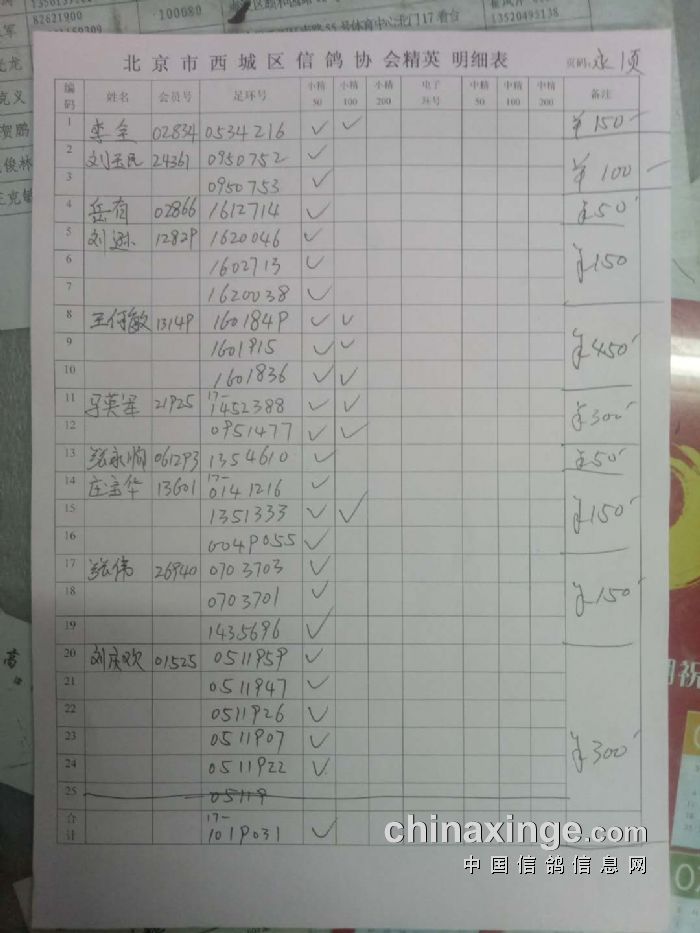 82621900
100080
13520495138
北京市西城区信鸽协会精英 明细表
页码:
编码 姓名 会员号 足环号 小精50 小精100 小精200 电子环号 中精50 中精100 中精200 备注
1 李全 02834 0534216 ✓ ✓ ¥150
2 刘玉民 24361 0950752 ✓
3 0950753 ✓ ¥100
4 岳有 02866 1612714 ✓ ¥50
5 刘 12829 1620046 ✓
6 1602713 ✓ ¥150
7 1620038 ✓
8 王何敏 13149 1601849 ✓ ✓
9 1601915 ✓ ✓ ¥450
10 1601836 ✓ ✓
11 马英军 21925 17-1452388 ✓ ✓ ¥300
12 0951477 ✓ ✓
13 张永 061293 1354610 ✓ ¥50
14 庄宝华 13601 17-0141216 ✓
15 1351333 ✓ ✓ ¥150
16 0049055 ✓
17 张伟 26940 0703703 ✓
18 0703701 ✓ ¥150
19 1435696 ✓
20 刘庆欢 01525 0511959 ✓
21 0511947 ✓
22 0511926 ✓
23 0511907 ✓ ¥300
24 0511922 ✓
25 05119
合计 17-1019031 ✓
chinaxinge.com
中国信鸽信息网